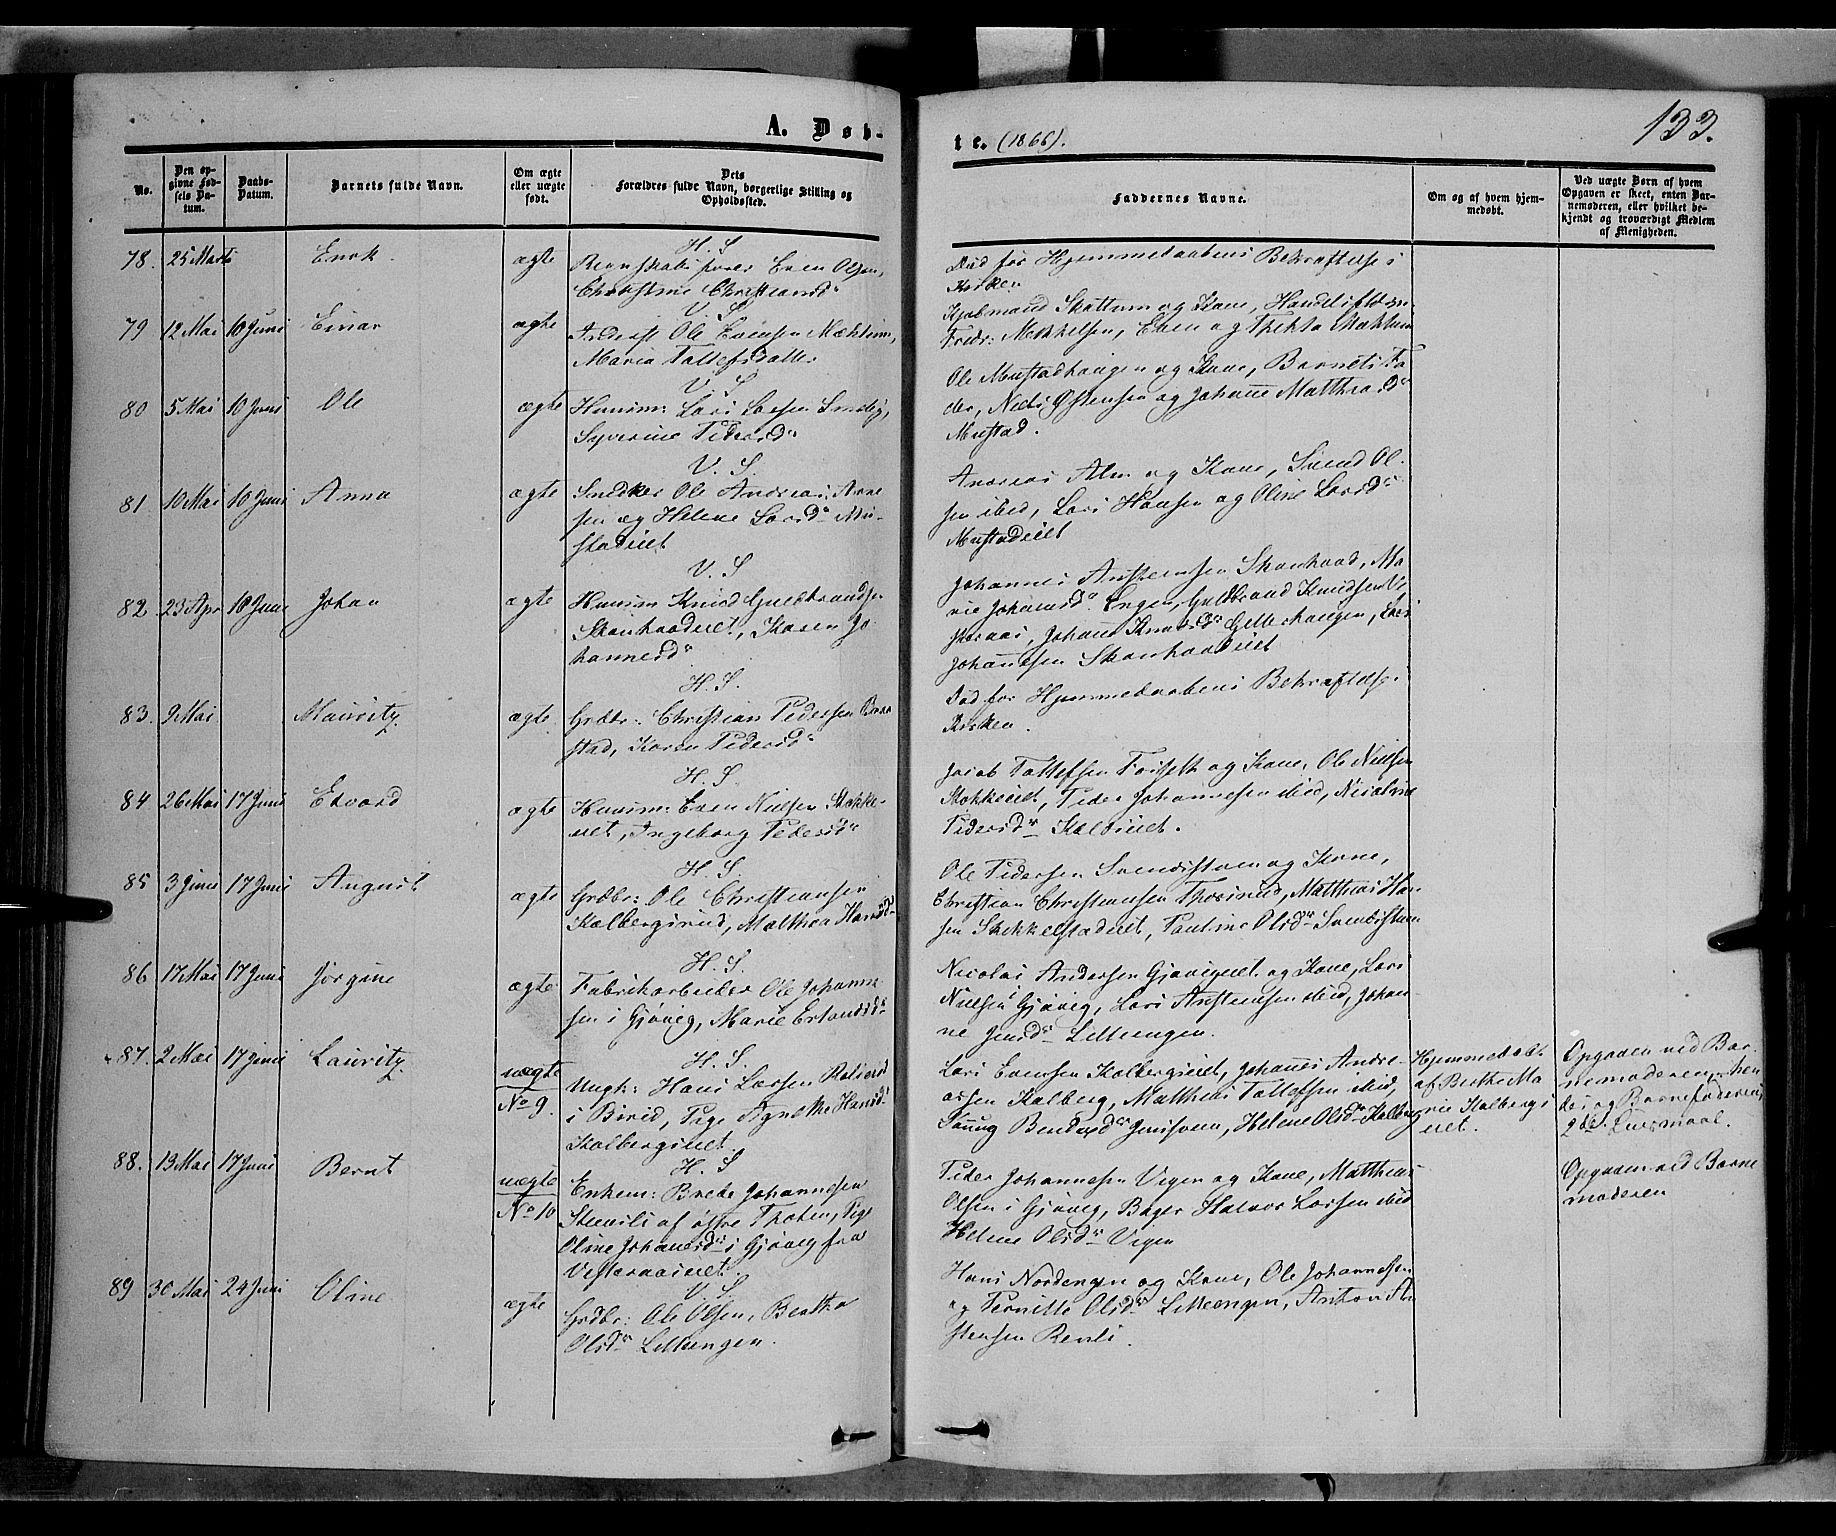 A. Døb-
te. (1866).
133.
No.
Den op-
givne Fød-
sels Da-
tum.
Daabs-
Datum.
Barnets fulde Navn.
Om ægte
eller uægte
født.
Dets
Forældres fulde Navn, borgerlige Stilling og
Opholdssted.
Faddernes Navne.
Om og af hvem hjem-
medøbt.
Ved uægte Børn af hvem
Opgaven er skeet, enten Bar-
nemoderen, eller hvilket be-
kjendt og troværdigt Medlem
af Menigheden.
78. 25 Marts Enok ægte
H. S
Regnskabsfører Even Olsen,
Christine Christiansd.
Død før Hjemmedaabens Bekræftelse i
Kirken
79 12 Mai 10 Juni Einar ægte
V. S
Ole Evensen Mæhlum,
Maria Tollefsdatter
Kjøbmand Skattum og Kone,
Fredr: Mikkelsen, Even og Mæhlum
80 5 Mai 10 Juni Ole ægte
V. S
Huusm: Lars Larsen
Syverine Pedersd.
Ole Mustadhaugen og Kone, Barnets Fa-
der, Niels Østensen og Johanne Matthiasd.
Mustad.
81 10 Mai 10 Juni Anna ægte
V. S.
Snedker Ole Andreas Arne
sen og Helene Larsd. Mu-
stadeiet
Andreas Alm og Kone, Svend Ol-
sen ibid, Lars Hansen og Oline Larsd.
Mustadeiet
82. 23 Apr 10 Juni Johan ægte
V. S
Huusm Knud Guldbrandsen
Skonhaadeiet, Karen Jo-
hannesd.
Johannes Austensen Skonhaad, Ma-
rie Johannesd. Engen, Guldbrand Knudsen
Johanne Knudsd. Gettehaugen, Lars
Johannesen Skonhaadeiet
83. 9 Mai Mauritz ægte
H. S.
Grdbr: Christian Pedersen Braa
stad, Karen Pedersd.
Død før Hjemmedaabens Bekræftelse i
Kirken.
84 26 Mai 17 Juni Edvard ægte
H. S.
Huusm: Even Nielsen Stokke-
eiet, Ingeborg Pedersd.
Jacob Tollefsen Forseth og Kone, Ole Nielsen
Stokkeeiet, Peder Johannesen ibid, Nicoline
Pedersd.
85 3 Juni 17 Juni August ægte
H. S.
Grdbr: Ole Christiansen
Kalbergsrud, Mathea Hansd.
Ole Pedersen Svendstuen og Kone,
Christian Christiansen Thorsrud, Matthias Han-
sen Skikkelstadeiet, Pauline Olsd. Svendstuen
86 17 Mai 17 Juni Jørgine ægte
H. S.
Fabrikarbeider Ole Johanne-
sen i Gjøvig, Marie Erlandsd.
Nicolai Andersen Gjøvigeiet og Kone, Lars
Nielsen i Gjøvig, Lars Austensen ibid, Johan-
ne Jensd. Lilleengen.
87. 2 Mai 17 Juni Lauritz uægte
No 9.
H. S.
Ungk: Hans Larsen
i Birid, Pige Agnethe Hansd.
Kalbergseiet
Lars Evensen Kalbergseiet, Johannes Andre-
assen Kalberg, Matthias Tollefsen ibid,
Helene Olsd. Kalberg
Hjemmedøbt
af Berthe Ma
rie Kalbergs
eiet.
Opgaven ved Bar-
nemoderen, hen
des og Barnefaderens
2det Leiermaal.
88. 13 Mai 17 Juni Bernt uægte
No 10
H. S
Enkem: Brede Johannesen
Steensli af østre Thoten, Pige
Oline Johannesd. i Gjøvig fra
Vesteraaseiet
Peder Johannesen Vigen og Kone, Matthias
Olsen i Gjøvig, Bager Halvor Larsen ibid
Helene Olsd. Vigen
Opgaven ved Barne
moderen
89 30 Mai 24 Juni Oline ægte
V. S
Grdbr: Ole Olsen, Berthe
Olsd. Lilleengen.
Hans Nordengen og Kone, Ole Johannesen
og Pernille Olsd. Lilleengen, Anton
stensen